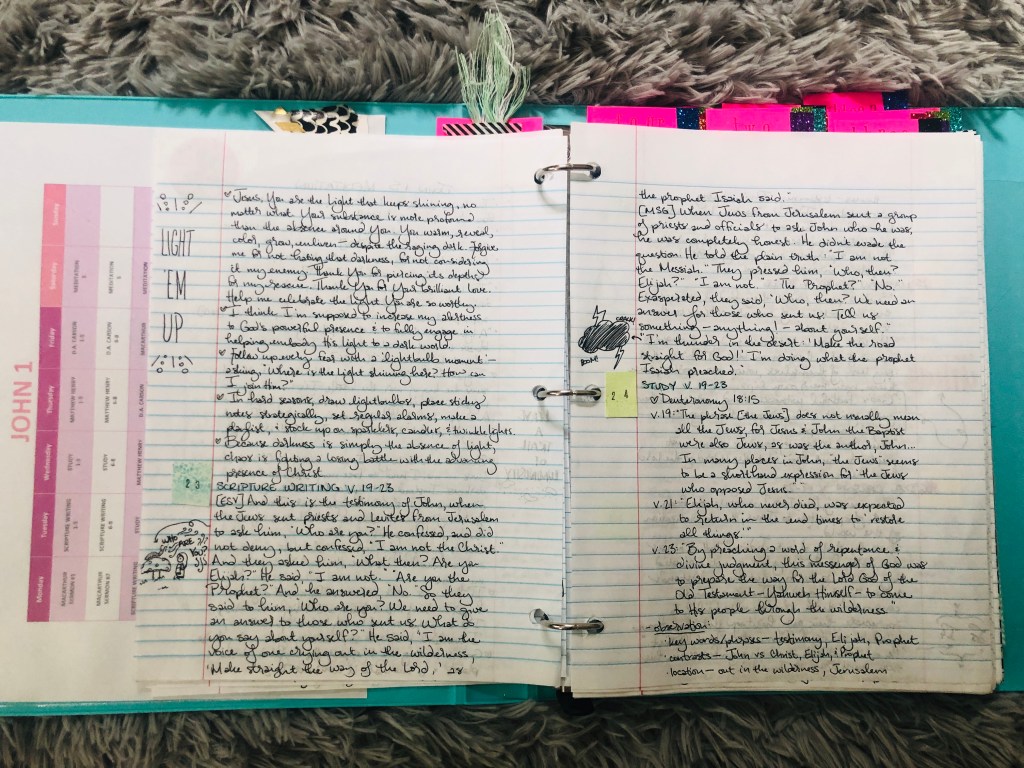 JOHN 1
Monday
Tuesday
Wednesday
Thursday
Friday
Saturday
Sunday
MACARTHUR
SERMON #1
SCRIPTURE WRITING
1-5
STUDY
1-5
MATTHEW HENRY
1-5
D.A. CARSON
1-5
MEDITATION
MACARTHUR
SERMON #2
SCRIPTURE WRITING
6-8
STUDY
6-8
MATTHEW HENRY
6-8
D.A. CARSON
MEDITATION
SCRIPTURE WRITING
STUDY
MATTHEW HENRY
D.A. CARSON
MACARTHUR
MEDITATION
LIGHT
'EM
UP
Jesus, You are the Light that keeps shining, no
matter what. Your substance is more profound
than the absence around You. You warm, reveal,
color, grow, enliven - despite the raging dark. Forgive
me for not hating that darkness, for not considering
it my enemy. Thank You for piercing its depths
for my rescue. Thank You for Your brilliant love.
Help me celebrate the Light You are so worthy.
I think I'm supposed to increase my alertness
to God's powerful presence & to fully engage in
helping embody His light to a dark world.
Follow up every fear with a "lightbulb moment" -
asking, "Where is the Light shining here? How can
I join Him?"
In hard seasons, draw lightbulbs, place sticky
notes strategically, set regular alarms, make a
playlist, & stock up on sparklers, candles, & twinkle lights.
Because darkness is simply the absence of light,
chaos is fighting a losing battle with the advancing
presence of Christ.
23
SCRIPTURE WRITING V. 19-23
[ESV] And this is the testimony of John, when
the Jews sent priests and Levites from Jerusalem
to ask him, "Who are you?" He confessed, and did
not deny, but confessed, "I am not the Christ."
And they asked him, "What then? Are you
Elijah?" He said, "I am not." "Are you the
Prophet?" And he answered, "No." So they
said to him, "Who are you? We need to give
an answer to those who sent us. What do
you say about yourself?" He said, "I am the
voice of one crying out in the wilderness,
'Make straight the way of the Lord,' as
WHO
ARE
YOU?
the prophet Isaiah said."
[MSG] When Jews from Jerusalem sent a group
of priests and officials to ask John who he was,
he was completely honest. He didn't evade the
question. He told the plain truth: "I am not
the Messiah." They pressed him, "Who, then?
Elijah?" "I am not." "The Prophet?" "No."
Exasperated, they said, "Who, then? We need an
answer for those who sent us. Tell us
something - anything! - about yourself."
"I'm thunder in the desert: 'Make the road
straight for God!' I'm doing what the prophet
Isaiah preached."
CRACK!
BOOM!
24
STUDY V. 19-23
Deuteronomy 18:15
v. 19: "The phrase [the Jews] does not usually mean
all the Jews, for Jesus & John the Baptist
were also Jews, as was the author, John...
In many places in John, 'the Jews' seems
to be a shorthand expression for 'the Jews
who opposed Jesus.'
v. 21: "Elijah, who never died, was expected
to return in the end times to 'restore
all things.'"
v. 23: "By preaching a word of repentance &
divine judgment, this messenger of God was
to prepare the way for the Lord God of the
Old Testament - Yahweh Himself - to come
to His people through the wilderness."
- observation:
· key words/phrases - testimony, Elijah, Prophet
· contrasts - John vs Christ, Elijah, & Prophet
· location - out in the wilderness, Jerusalem